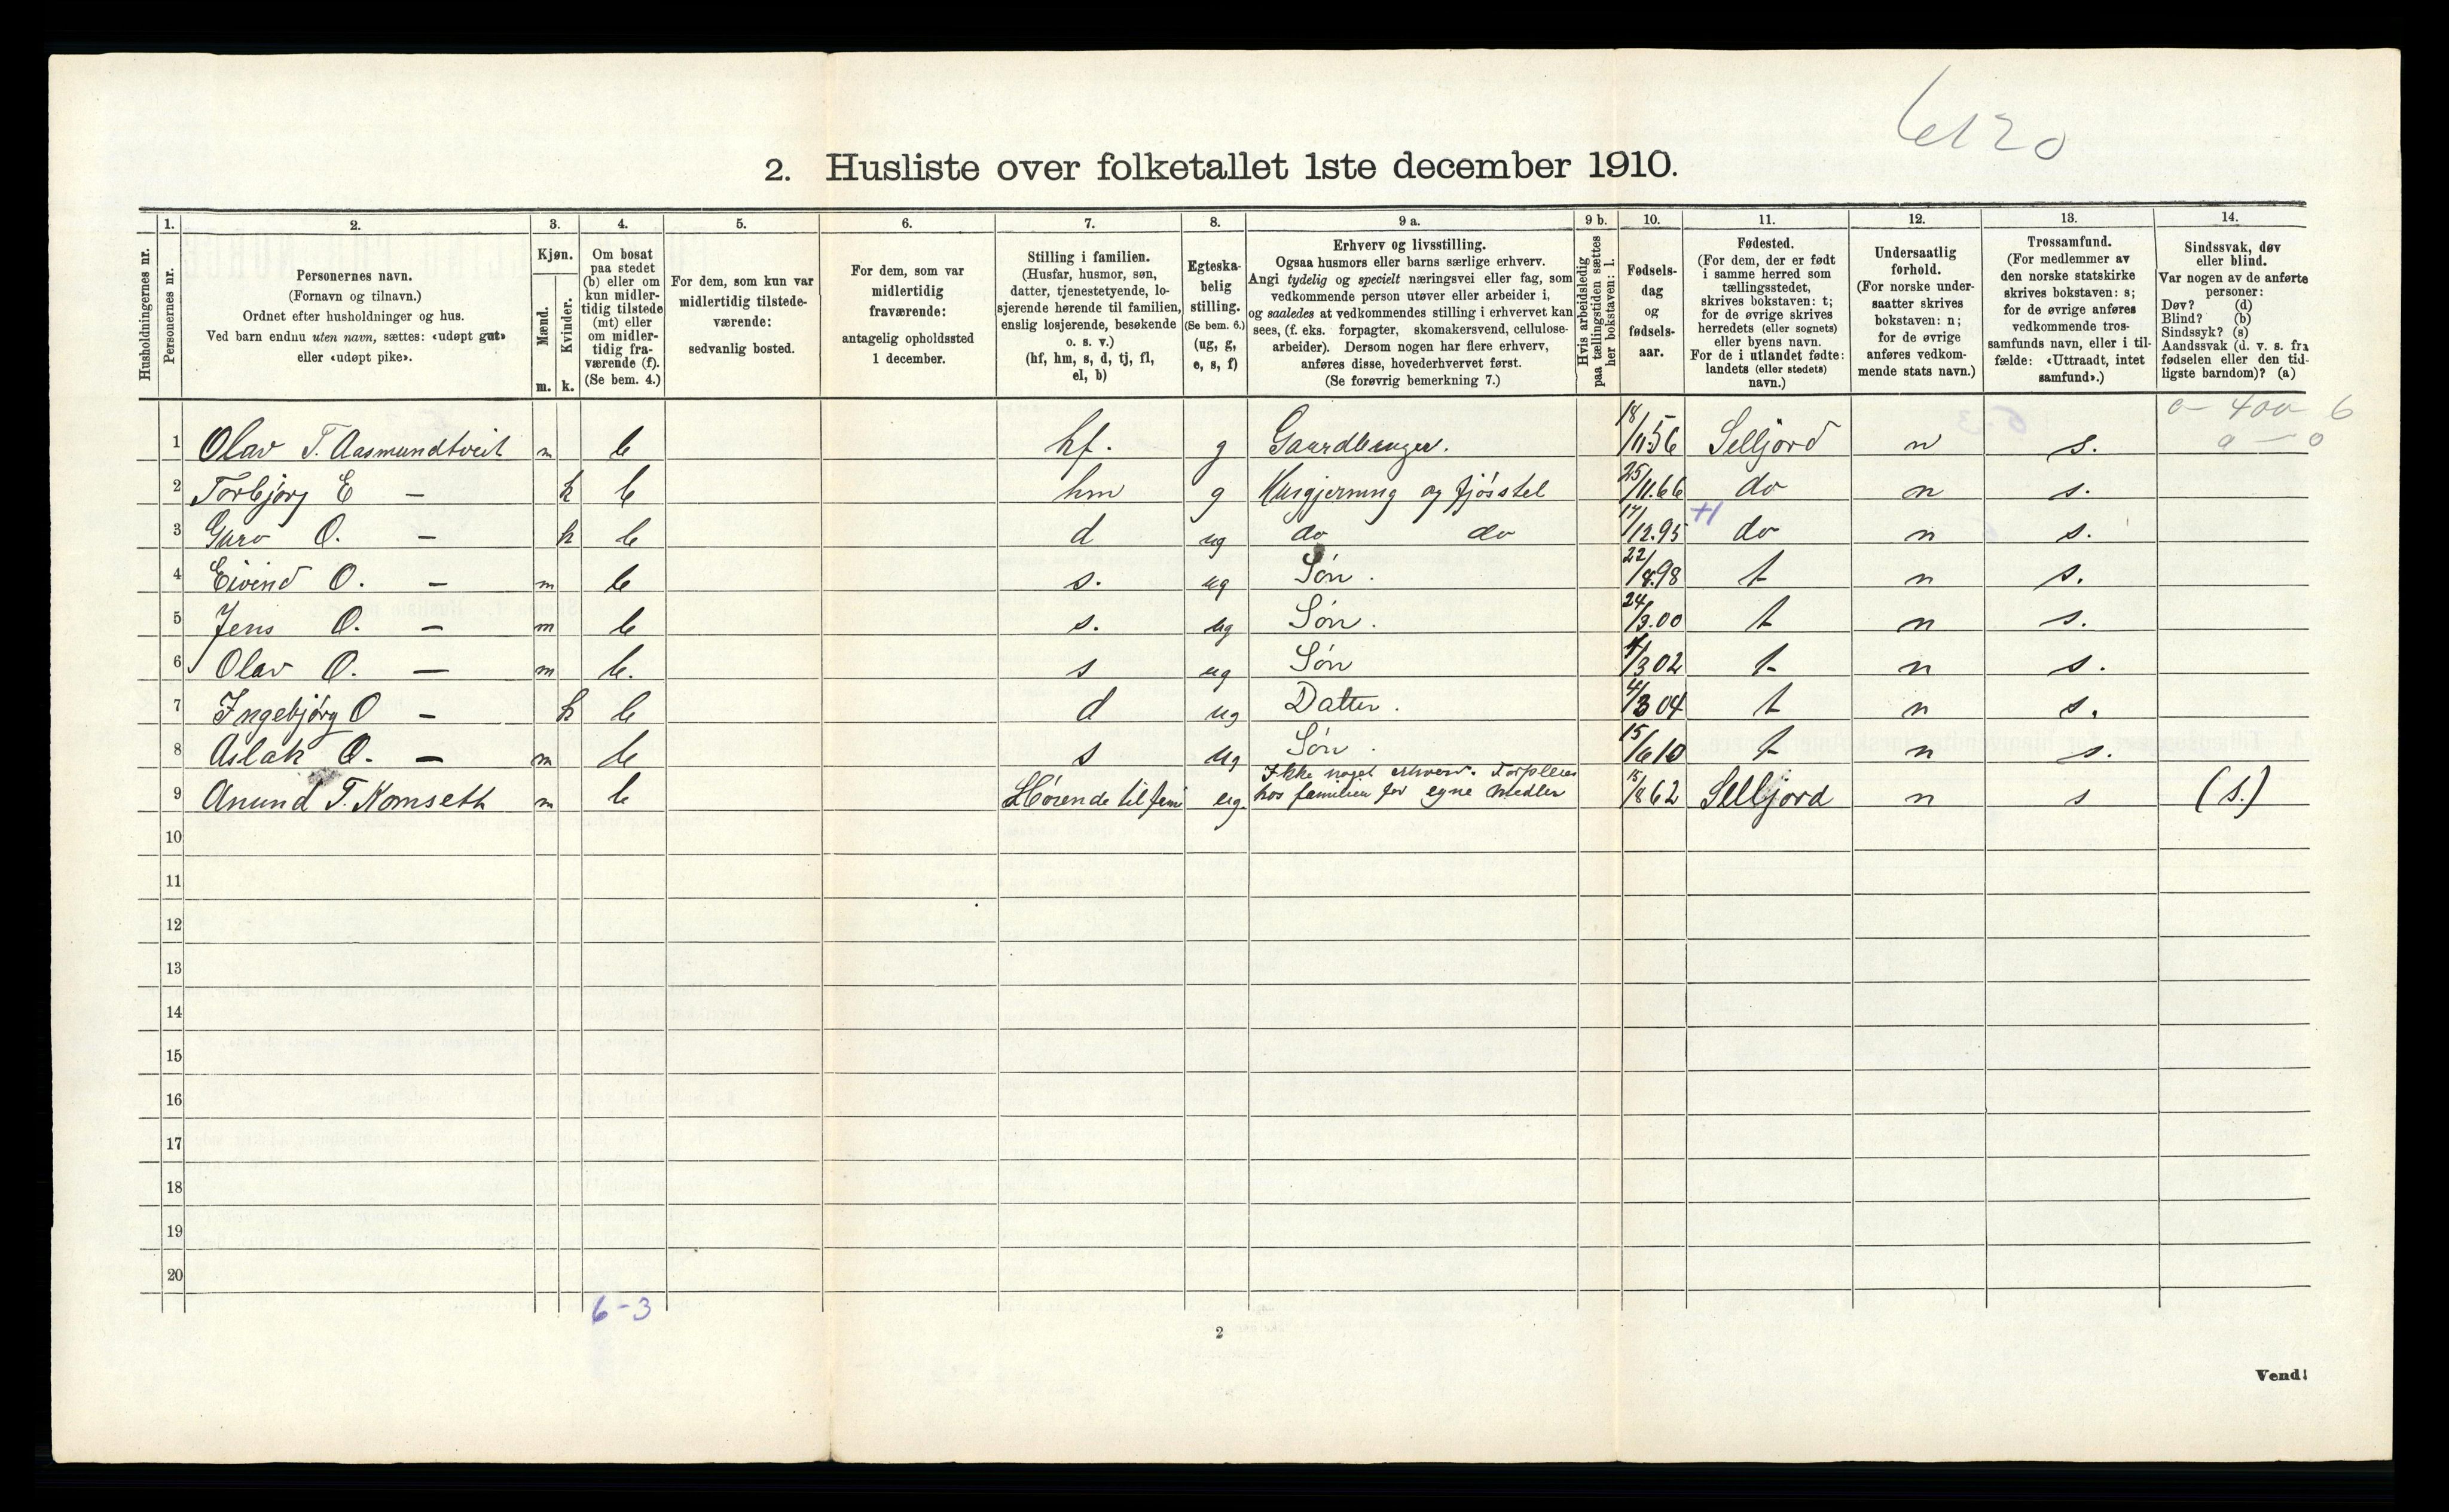 6120
2. Husliste over folketallet 1ste december 1910.
Husholdningernes nr.
1.
Personernes nr.
2.
Personernes navn.
(Fornavn og tilnavn.)
Ordnet efter husholdninger og hus.
Ved barn endnu uten navn, sættes: «udøpt gut»
eller «udøpt pike».
3.
Kjøn.
Mænd.
Kvinder.
m. k.
4.
Om bosat
paa stedet
(b) eller om
kun midler-
tidig tilstede
(mt) eller
om midler-
tidig fra-
værende (f).
(Se bem. 4.)
5.
For dem, som kun var
midlertidig tilstede-
værende:
sedvanlig bosted.
6.
For dem, som var
midlertidig
fraværende:
antagelig opholdssted
1 december.
7.
Stilling i familien.
(Husfar, husmor, søn,
datter, tjenestetyende, lo-
sjerende hørende til familien,
enslig losjerende, besøkende
o. s. v.)
(hf, hm, s, d, tj, fl,
el, b)
8.
Egteska-
belig
stilling.
(Se bem. 6.)
(ug, g,
e, s, f)
9 a.
Erhverv og livsstilling.
Ogsaa husmors eller barns særlige erhverv.
Angi tydelig og specielt næringsvei eller fag, som
vedkommende person utøver eller arbeider i,
og saaledes at vedkommendes stilling i erhvervet kan
sees, (f. eks. forpagter, skomakersvend, cellulose-
arbeider). Dersom nogen har flere erhverv,
anføres disse, hovederhvervet først.
(Se forøvrig bemerkning 7.)
9 b.
Hvis arbeidsledig
paa tællingstiden sættes
her bokstaven: l.
10.
Fødsels-
dag
og
fødsels-
aar.
11.
Fødested.
(For dem, der er født
i samme herred som
tællingsstedet,
skrives bokstaven: t;
for de øvrige skrives
herredets (eller sognets)
eller byens navn.
For de i utlandet fødte:
landets (eller stedets)
navn.)
12.
Undersaatlig
forhold.
(For norske under-
saatter skrives
bokstaven: n;
for de øvrige
anføres vedkom-
mende stats navn.)
13.
Trossamfund.
(For medlemmer av
den norske statskirke
skrives bokstaven: s;
for de øvrige anføres
vedkommende tros-
samfunds navn, eller i til-
fælde: «Uttraadt, intet
samfund».)
14.
Sindssvak, døv
eller blind.
Var nogen av de anførte
personer:
Døv? (d)
Blind? (b)
Sindssyk? (s)
Aandssvak (d. v. s. fra
fødselen eller den tid-
ligste barndom)? (a)
0 - 400 - 6
0 — 0
1 Olav T. Aasmundtveit m b hf. g Gaardbruger. 18/11 56 Selljord n s.
2 Torbjørg E — k b hm g Husgjerning og fjøsstel 25/11.66 do n s.
3 Guro O. — k b d ug do do 17/12.95 +1 do n s.
4 Eivind O. — m b s. ug Søn. 22/8.98 t n s.
5 Jens O. — m b s. ug Søn. 24/3.00 t n s.
6 Olav O. — m b. s ug Søn 4/3 02 t n s.
7 Ingebjørg O — k b d ug Datter. 4/3 04 t n s.
8 Aslak O. — m b s ug Søn. 15/6 10 t n s.
9 Anund T. Komseth m b Hørende til fam ug. Ikke noget erhverv. Forpleies
hos familien for egne midler 15/8 62 Selljord n s (s.)
10
11
12
13
14
15
16
17
18
19
20
6-3
2
Vend!